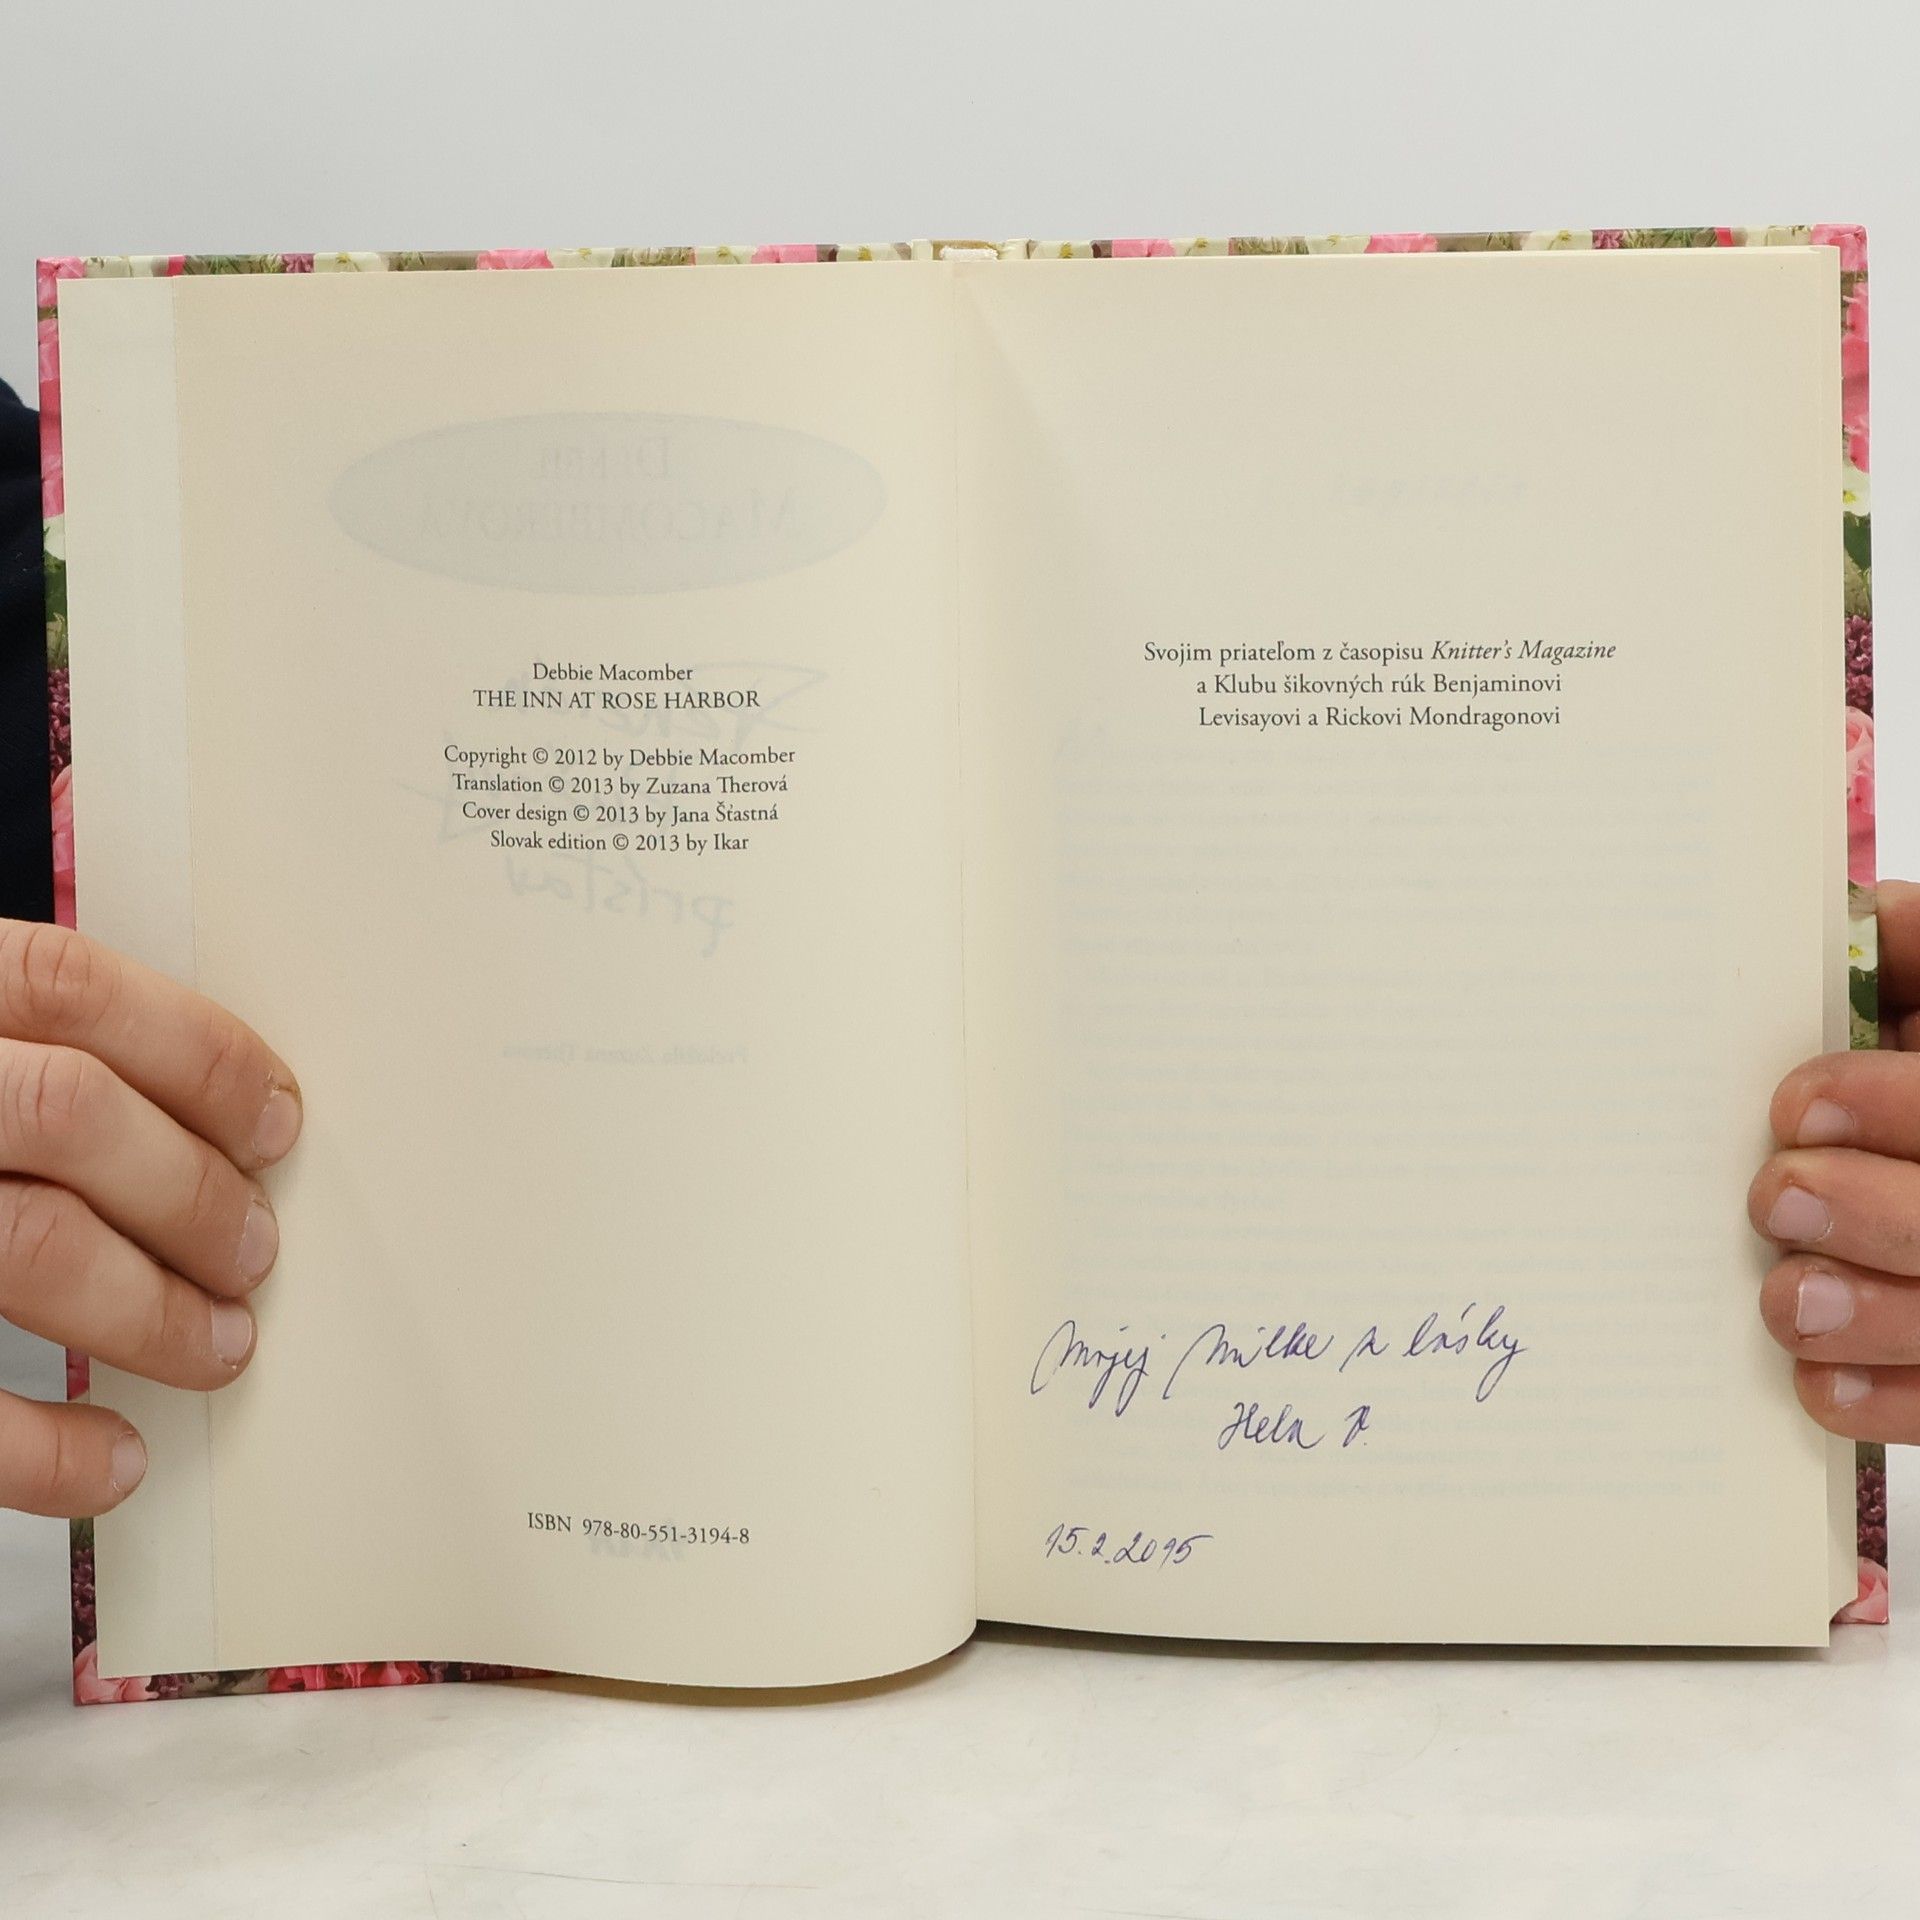 Debbie Macomber
THE INN AT ROSE HARBOR
Copyright © 2012 by Debbie Macomber
Translation © 2013 by Zuzana Therová
Cover design © 2013 by Jana Šťastná
Slovak edition © 2013 by Ikar
ISBN 978-80-551-3194-8
Svojim priateľom z časopisu Knitter's Magazine
a Klubu šikovných rúk Benjaminovi
Levisayovi a Rickovi Mondragonovi
Mojej Milke z lásky
Hela P.
15.2.2015